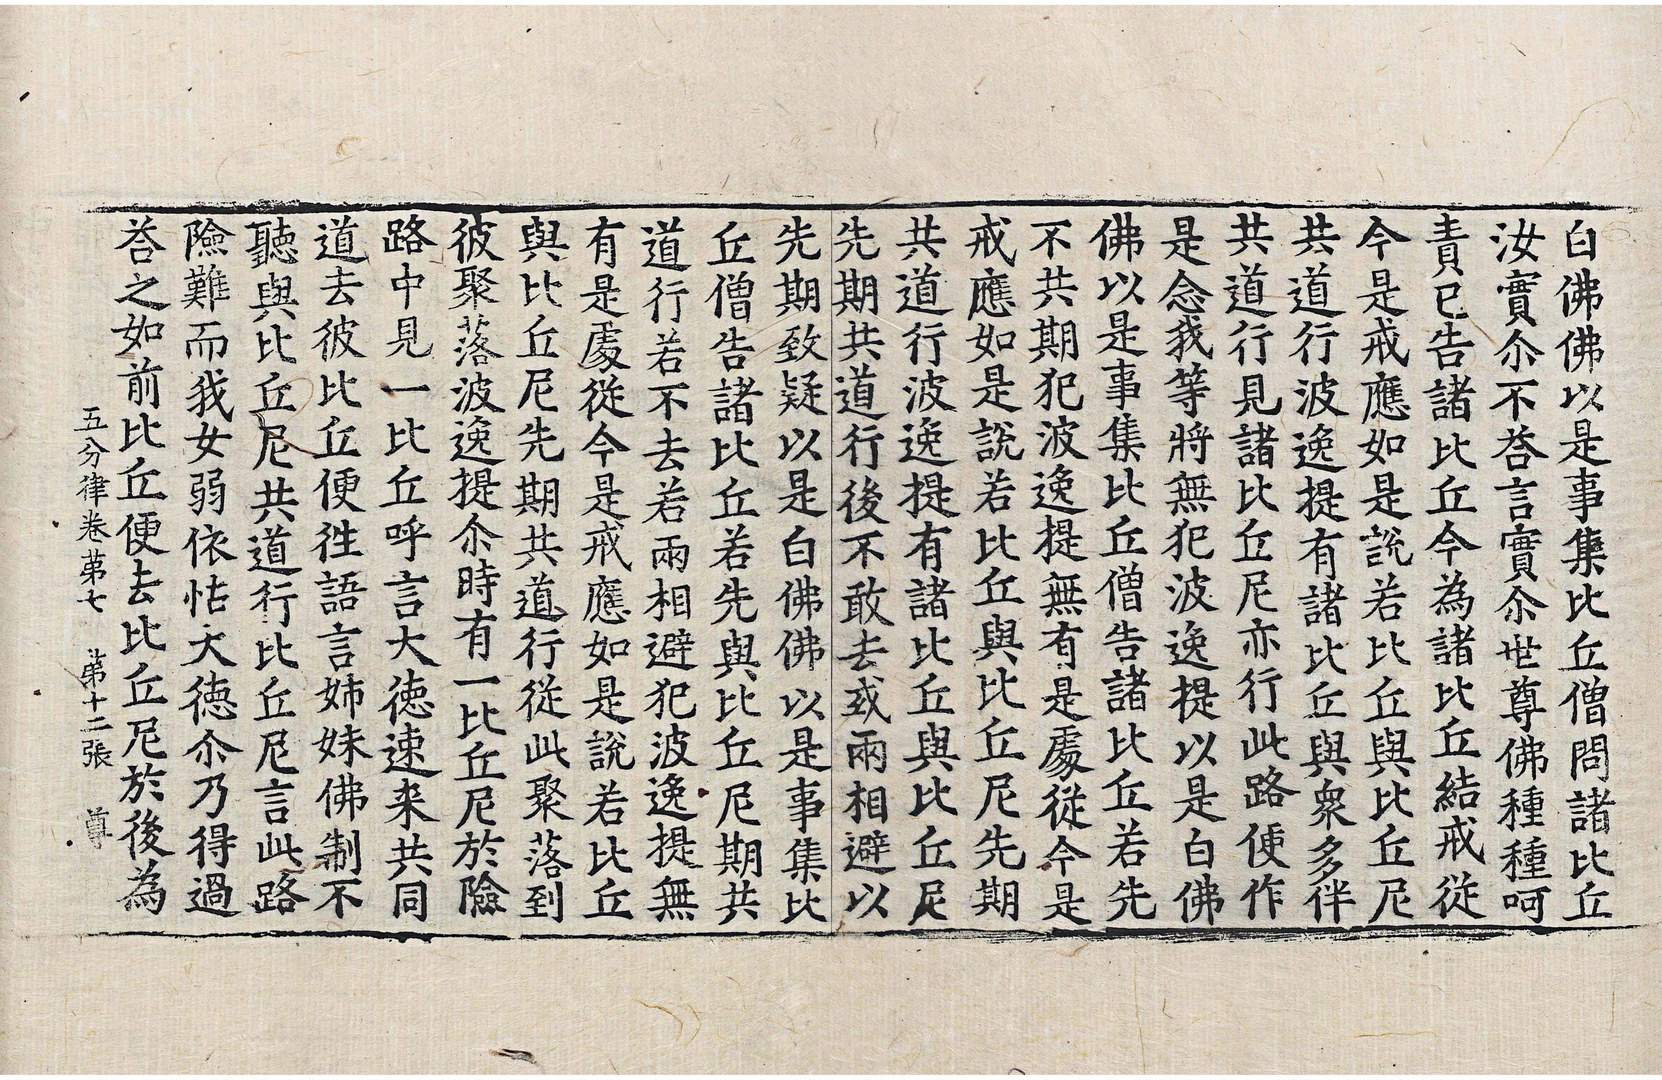 白佛佛以是事集比丘僧問諸比丘
汝實尒不荅言實尒世尊佛種種呵
責已告諸比丘今為諸比丘結戒從
今是戒應如是說若比丘與比丘尼
共道行波逸提有諸比丘與衆多伴
共道行見諸比丘尼亦行此路便作
是念我等將無犯波逸提以是白佛
佛以是事集比丘僧告諸比丘若先
不共期犯波逸提無有是處從今是
戒應如是說若比丘與比丘尼先期
共道行波逸提有諸比丘與比丘尼
先期共道行後不敢去或兩相避以
先期致疑以是白佛佛以是事集比
丘僧告諸比丘若先與比丘尼期共
道行若不去若兩相避犯波逸提無
有是處從今是戒應如是說若比丘
與比丘尼先期共道行從此聚落到
彼聚落波逸提尒時有一比丘尼於險
路中見一比丘呼言大德速来共同
道去彼比丘便徃語言姊妹佛制不
聽與比丘尼共道行比丘尼言此路
險難而我女弱依怙大德尒乃得過
荅之如前比丘便去比丘尼於後為
五分律卷苐七 苐十二張 尊